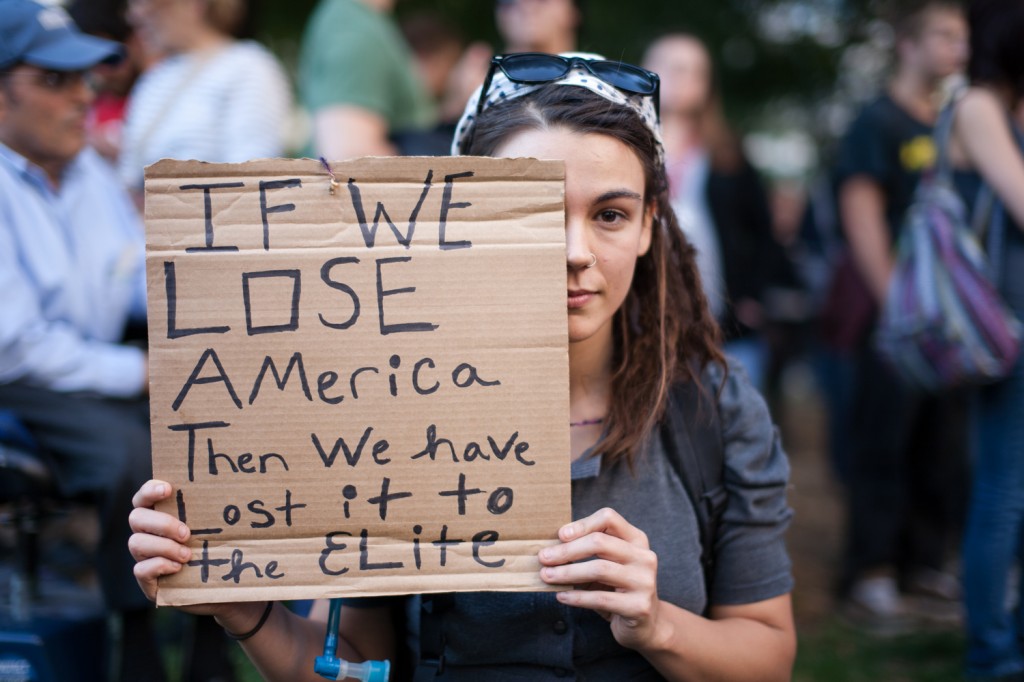 IF WE
LOSE
AMericA
Then We have
Lost it to
the ELite